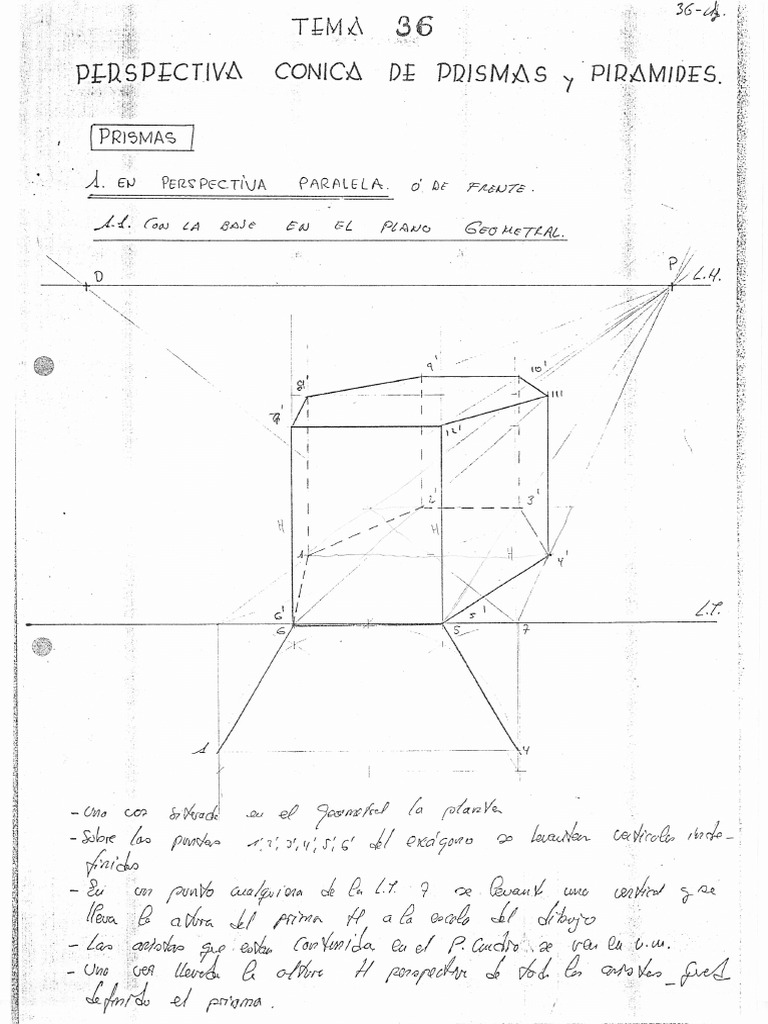 36-
TEMA 36
PERSPECTIVA CONICA DE PRISMAS y PIRAMIDES.
PRISMAS
1. EN PERSPECTIVA PARALELA. Ó DE FRENTE.
1.1. CON LA BASE EN EL PLANO GEOMETRAL.
D
P
L.H.
9'
10'
8'
11'
7'
12'
2'
3'
H
H
H
1
4'
6'
5'
L.T.
6
5
7
1
4
- Una vez situada en el geometral la planta
- Sobre los puntos 1', 2', 3', 4', 5', 6' del exágono se levantan verticales inde-
finidas
- En un punto cualquiera de la L.T. 7 se levant una vertical y se
lleva la altura del prisma H a la escala del dibujo
- Las aristas que estan contenida en el P. Cuadro se ven en v.m.
- Una vez llevada la altura H perspectiva de toda las aristas
definido el prisma.